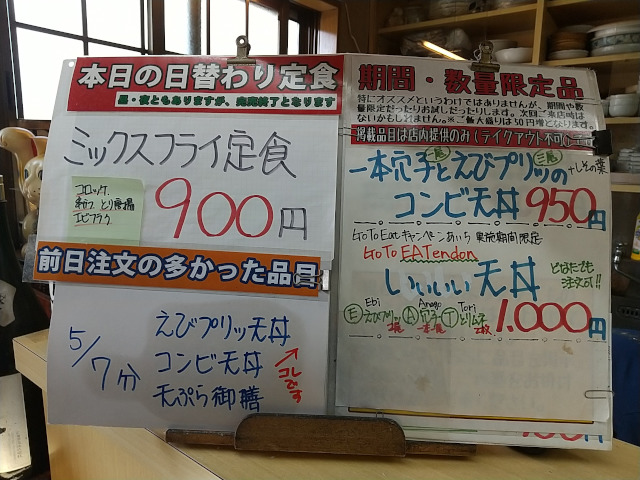 本日の日替わり定食
昼・夜ともありますが、売切終了となります
ミックスフライ定食
コロッケ
とり唐揚
エビフライ
900円
前日注文の多かった品目
5/7分
えびプリッ天丼
コンビ天丼
天ぷら御膳
コレです
期間・数量限定品
特にオススメというわけではありませんが、期間や数
量限定だったりお試しだったりします。次回ご来店時は
ないかもしれません。※ご飯大盛りは50円増となります。
掲載品目は店内提供のみ(テイクアウト不可)
一本穴子と二尾えびプリッの
+しその葉
コンビ天丼 950円
Go To Eatキャンペーンあいち 実施期間限定
Go To EATendon
いいいい天丼
どなたでも
注文可!!
Ebi Anago Tori
Ⓔえびプリッ Ⓐ穴子 Ⓣとりムネ
一本 2枚
1.000円